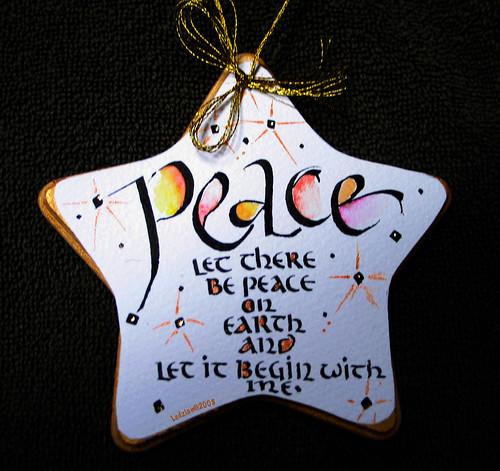 Peace
LET THERE
BE PEACE
ON
EARTH
AND
LET IT BEGIN WITH
ME.